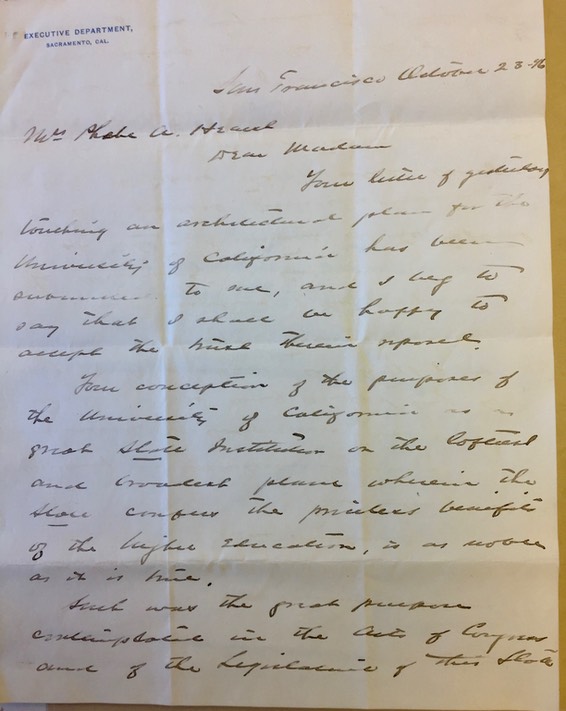 EXECUTIVE DEPARTMENT,
SACRAMENTO, CAL.
San Francisco October 23-96
Mrs Phebe A. Hearst
Dear Madam
Your letter of yesterday
touching an architectural plan for the
University of California has been
submitted to me, and I beg to
say that I shall be happy to
accept the trust therein reposed.
Your conception of the purposes of
the University of California as a
great State Institution on the loftiest
and broadest plane wherein the
State confers the priceless benefits
of the higher education, is as noble
as it is true.
Such was the great purpose
contemplated in the Acts of Congress
and of the Legislature of this State